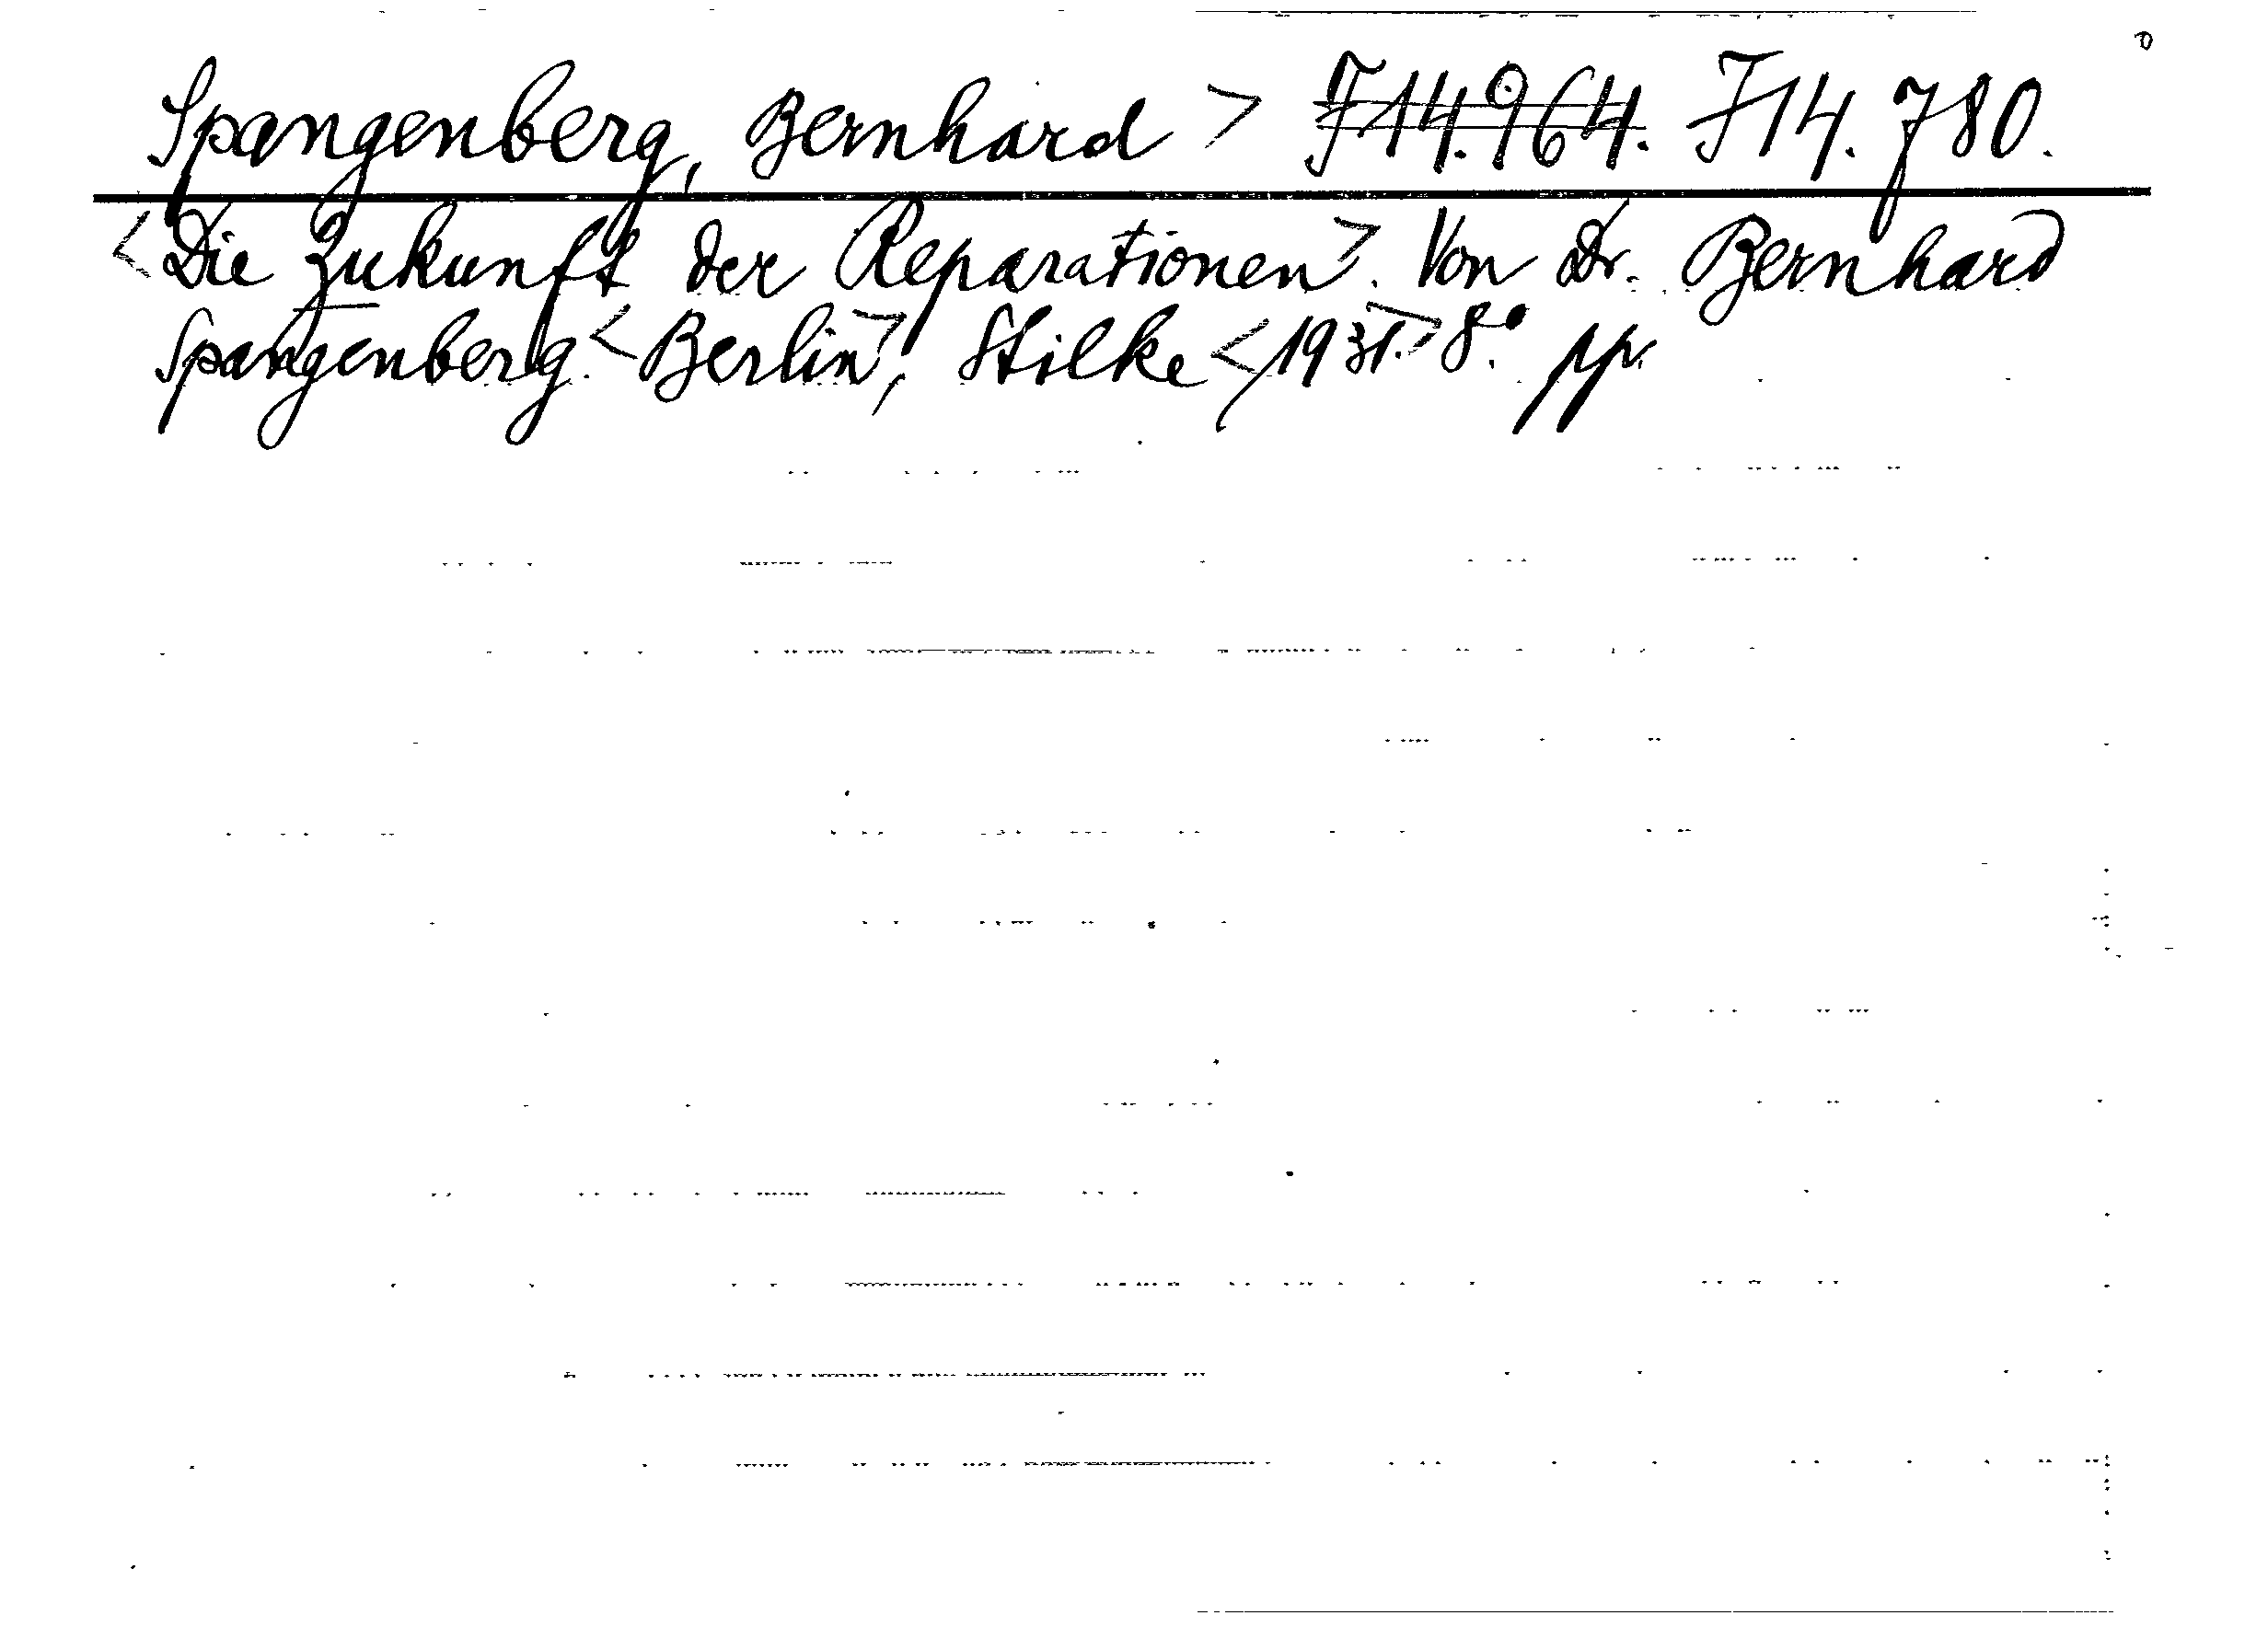 Spangenberg, Bernhard > F14.964. F14.780.
<Die Zukunft der Reparationen>. Von Dr. Bernhard
Spangenberg. <Berlin>, Stilke <1931.> 8.° pp.